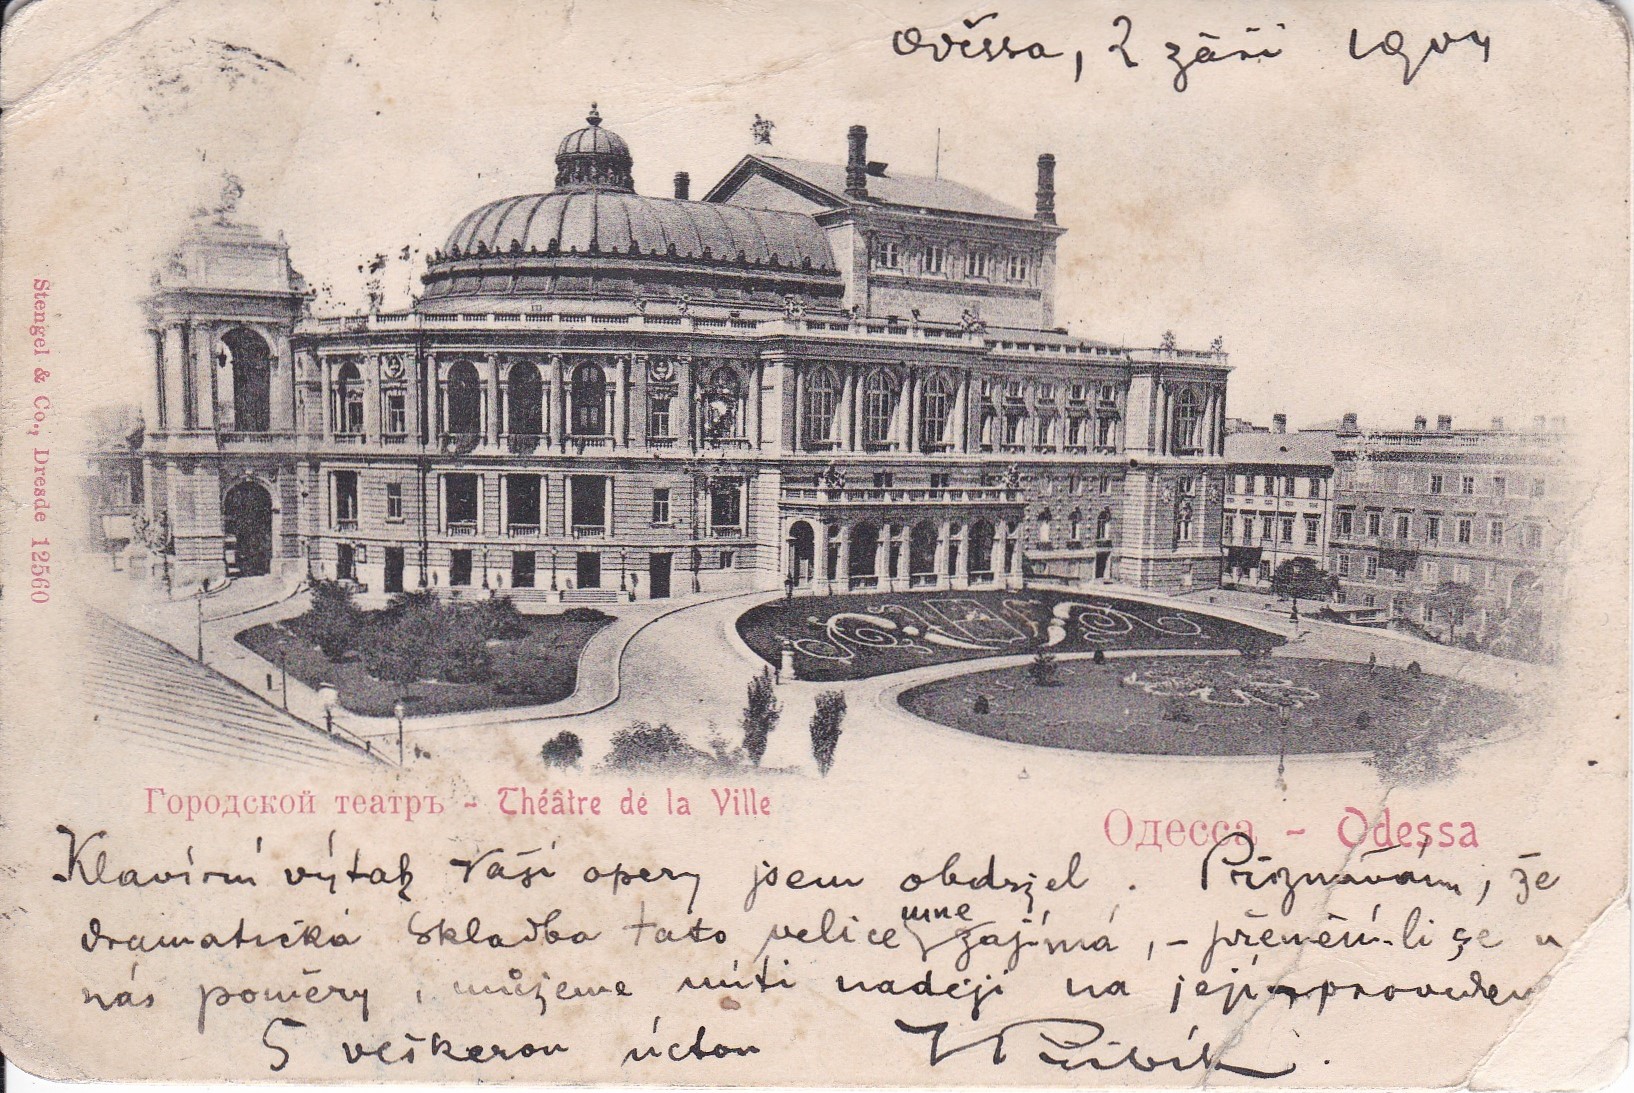 Oděssa, 2 září 1904
Stengel & Co., Dresde 12560
Городской театръ - Théâtre de la Ville
Одесса - Odessa
Klavírní výtah Vaší opery jsem obdržel. Přiznávám, že
dramatická skladba tato velice mne zajímá, - přemění-li se u
nás poměry, můžeme míti naději na její provedení
S veškerou úctou